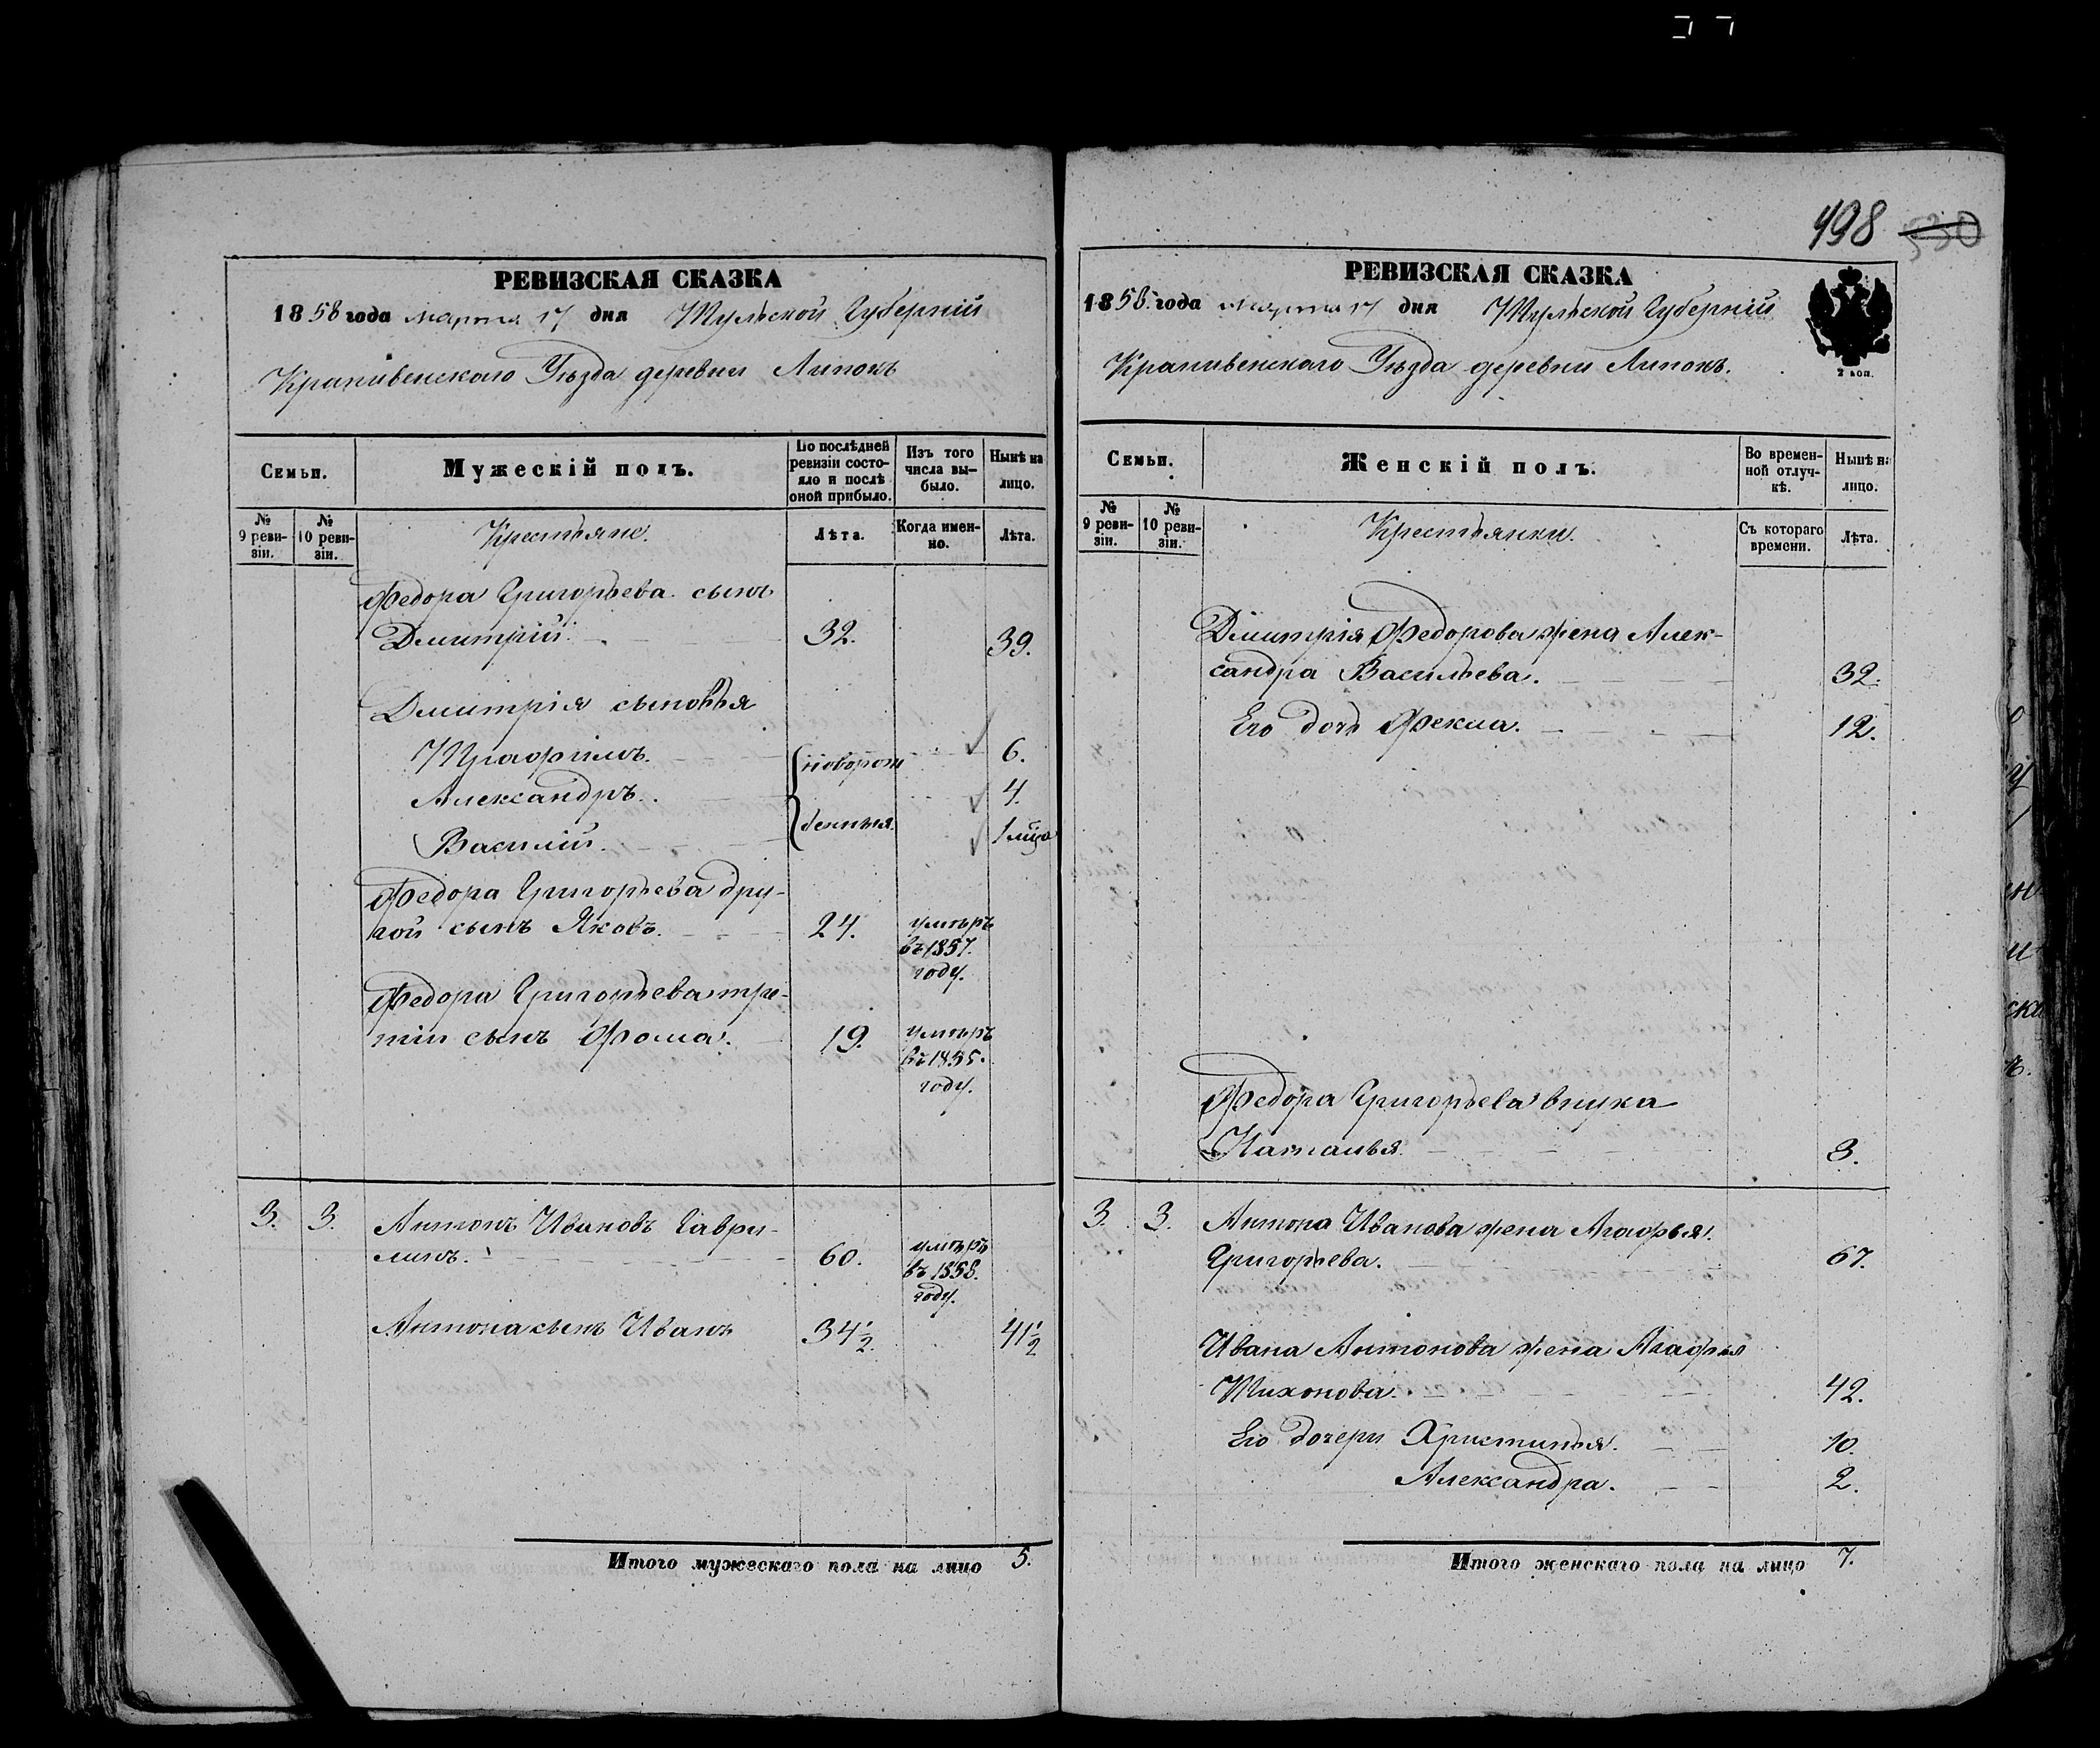 498 530
РЕВИЗСКАЯ СКАЗКА
1858 года марта 17 дня Тульской Губерніи
Крапивенскаго Уѣзда деревни Липокъ
Семьи.
Мужескій полъ.
По послѣдней ревизіи состояло и послѣ оной прибыло.
Изъ того числа выбыло.
Нынѣ на лицо.
№ 9 ревизіи.
№ 10 ревизіи.
Крестьяне.
Лѣта.
Когда именно.
Лѣта.
Федора Григорьева сынъ
Дмитрій. 32. 39.
Дмитрія сыновья
Трофимъ. новорож 6.
Александръ. 4.
Василій. денныя. 1 мца
Федора Григорьева дру-
гой сынъ Яковъ. 24. умѣръ
въ 1857.
году.
Федора Григорьева тре-
тій сынъ Фома. 19. умѣръ
въ 1855.
году.
3. 3. Антонъ Ивановъ Гаври-
линъ. 60. умѣръ
въ 1858.
году.
Антона сынъ Иванъ 34½. 41½
Итого мужескаго пола на лицо 5.
РЕВИЗСКАЯ СКАЗКА
1858. года марта 17 дня Тульской Губерніи
Крапивенскаго Уѣзда деревни Липокъ.
2 коп.
Семьи.
Женскій полъ.
Во временной отлучкѣ.
Нынѣ на лицо.
№ 9 ревизіи.
№ 10 ревизіи.
Крестьянки.
Съ котораго времени.
Лѣта.
Дмитрія Федорова жена Алек-
сандра Васильева. 32.
Его дочь Фекла. 12.
Федора Григорьева внука
Наталья. 3.
3. 3. Антона Иванова жена Агафья.
Григорьева. 67.
Ивана Антонова жена Агафья
Тихонова. 42.
Его дочери Христинья. 10.
Александра. 2.
Итого женскаго пола на лицо 7.